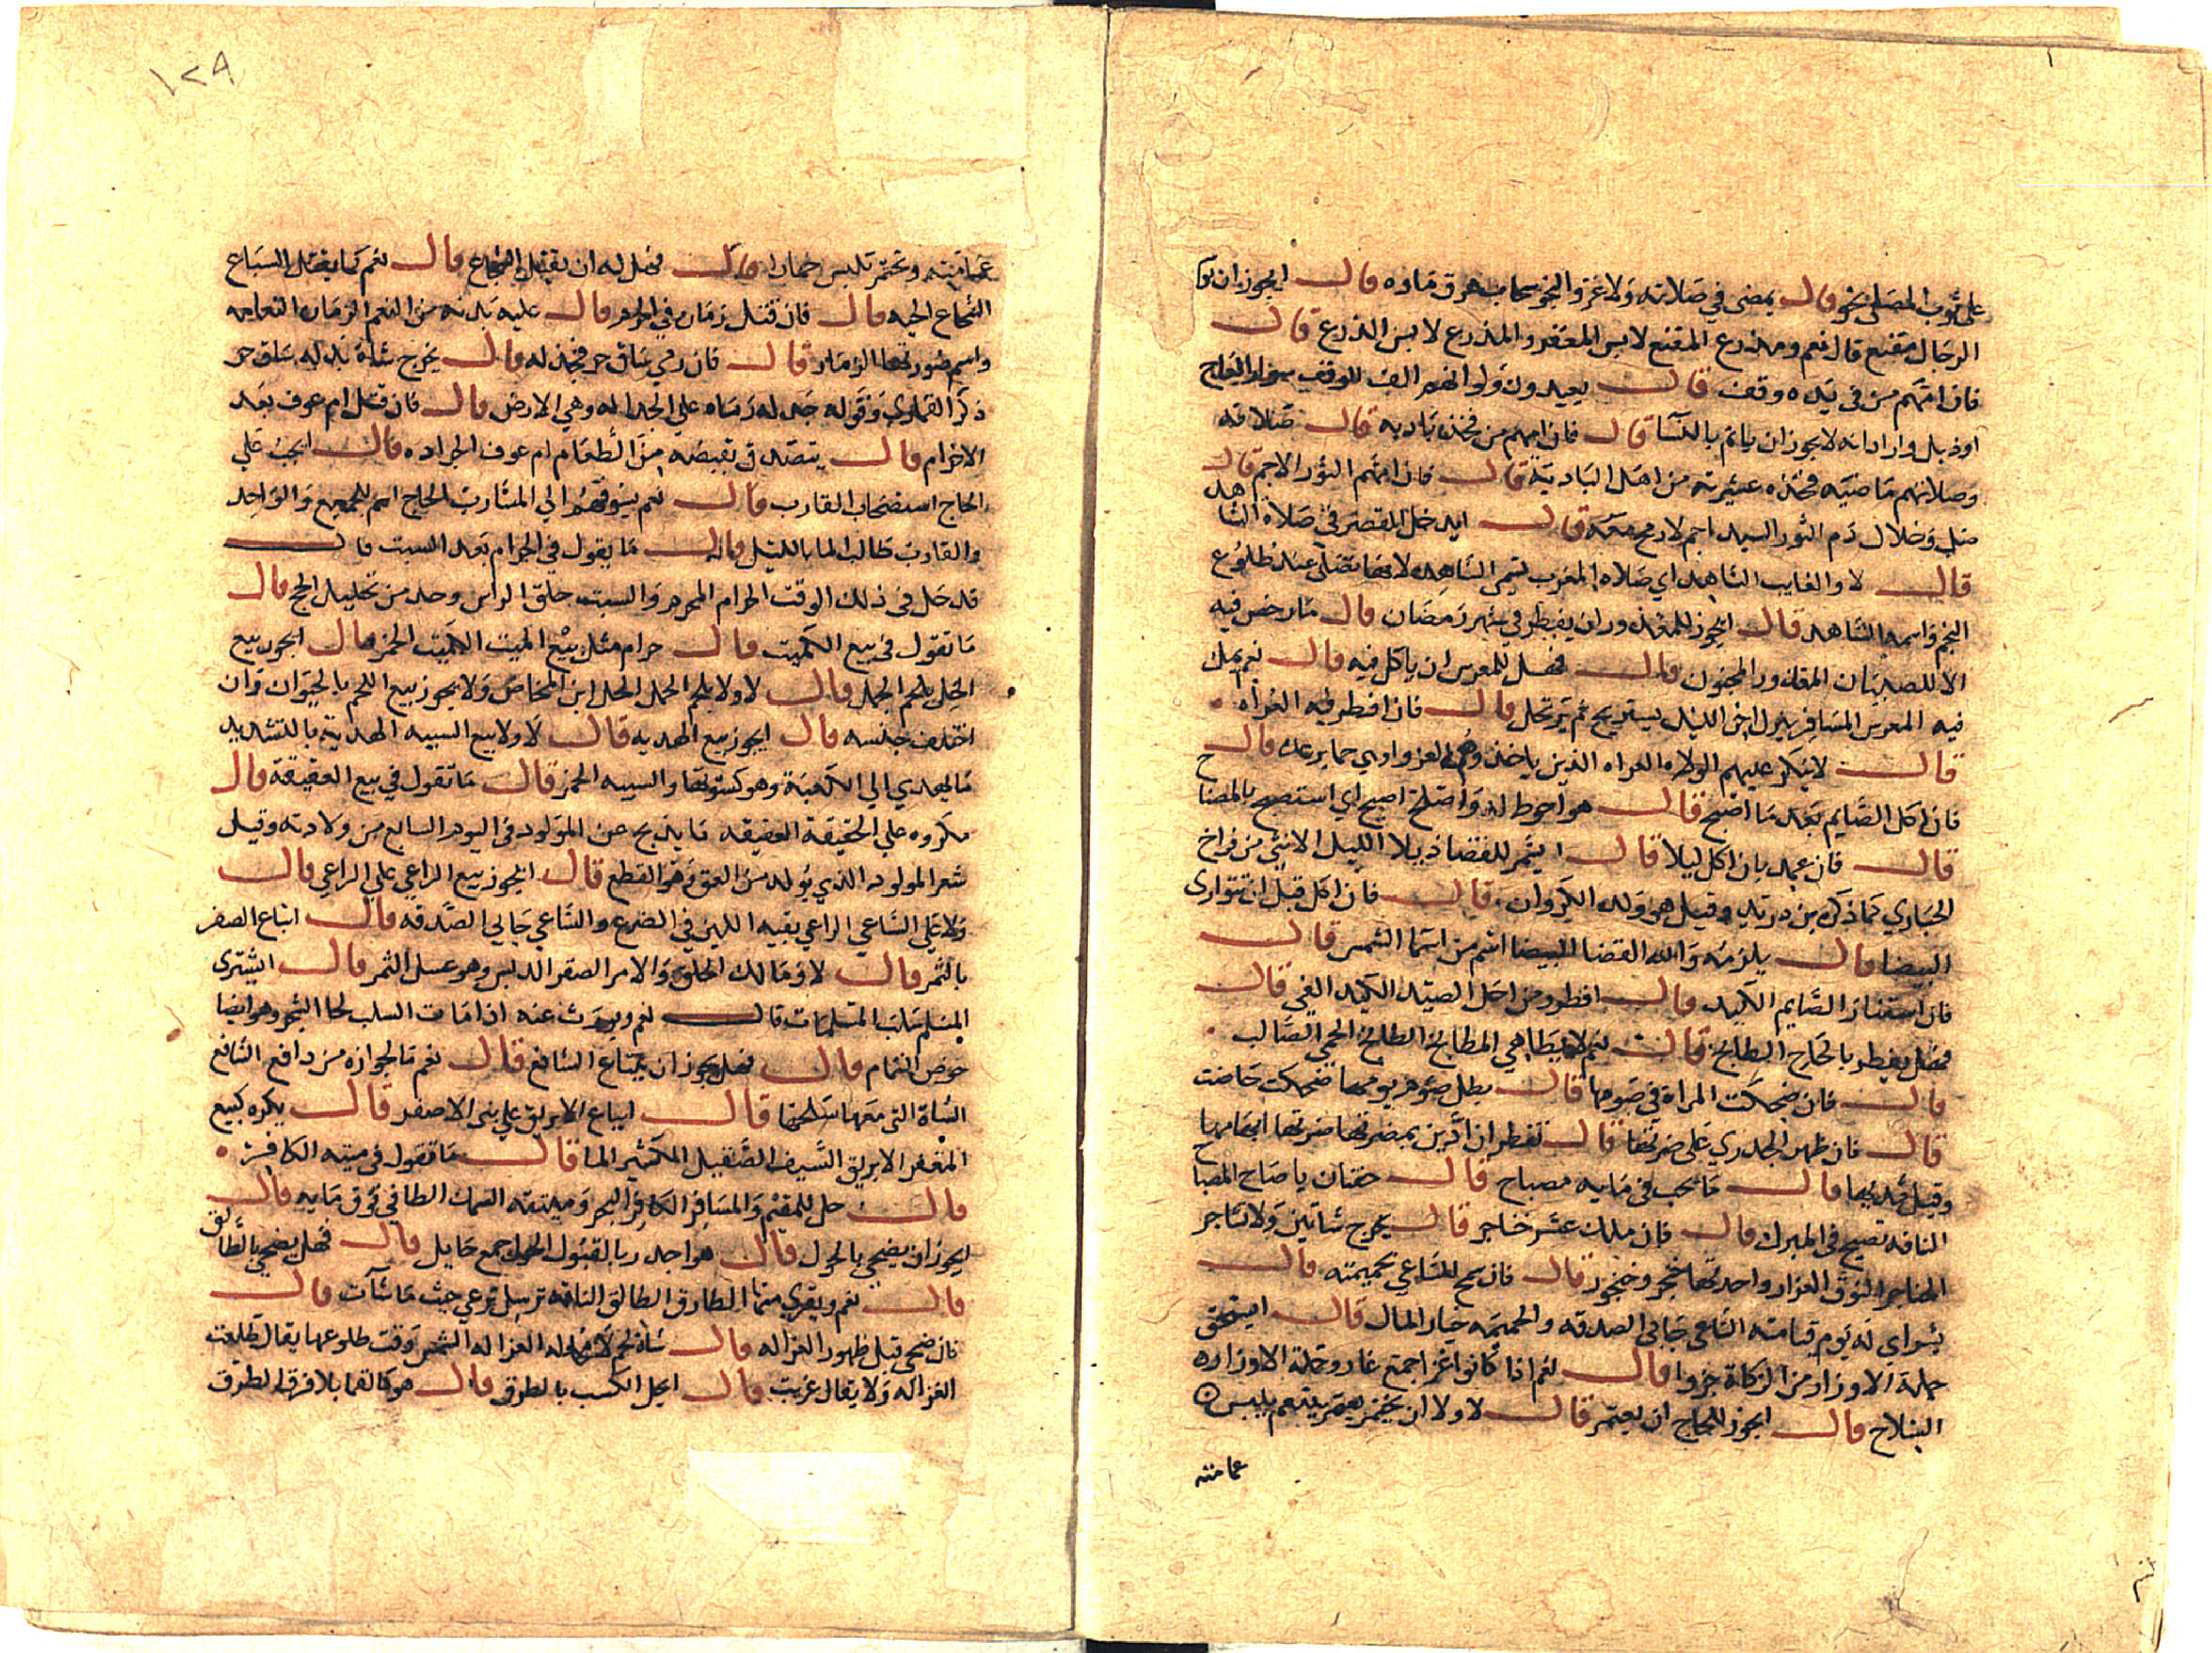 على ثوب المصلى نجو قال يمضى في صلاته ولا غرو النجو سحاب هرق ماوه قال ايجوز ان يوم
الرجال مقنع قال نعم ومدرع المقنع لابس المغفر والمدرع لابس الدرع قال
فان امهم من في يده وقف قال يعيدون ولو انهم الف الوقف سوار العاج
او ذبل واراد انه لا يجوز ان ياتم بالنسا قال فان امهم من فخذه باديه قال صلاته
وصلاتهم ماضيه فخذه عشيرته من اهل الباديه قال فان امهم الثور الاجم قال
صل وخلاك ذم الثور السيد اجم لا رمح معه قال ايدخل القصر في صلاه الشاهد
قال لا والغايب الشاهد اي صلاه المغرب تسمى الشاهد لانها تصلى عند طلوع
النجم واسمه الشاهد قال ايجوز للمعذور ان يفطر في شهر رمضان قال ما رخص فيه
الا للصبيان المعذور المختون قال فهل للمعرس ان ياكل فيه قال نعم بملء
فيه المعرس المسافر ينزل اخر الليل يستريح ثم يرتحل قال فان افطر فيه العراه
قال لا ينكر عليهم الولاه العراه الذين ياخذهم العروا وهي حما برعده قال
فان اكل الصايم بعد ما اصبح قال هو احوط له واصلح اصبح اي استصبح بالمصباح
قال فان عمد بان اكل ليلا قال يشمر للقضا ذيلا الليل الانثى من فراخ
الحبارى كما ذكر بن دريد وقيل هو ولد الكروان قال فان اكل قبل ان تتوارى
البيضا قال يلزمه والله القضا البيضا اسم من اسما الشمس قال
فان استثار الصايم الكيد قال افطر ومن احل الصيد الكيد القي قال
فهل يفطر بالحاح الطابخ قال نعم لا بطاهي المطابخ الطابخ الحمى الصالب
قال فان ضحكت المراة في صومها قال بطل صوم يومها ضحكت حاضت
قال فان ظهر الجدري على ضرتها قال تفطر ان اذن بمضرتها ضرتها ابهامها
وقيل ثديها قال ما يجب في مايه مصباح قال حقتان يا صاح المصباح
الناقه تصبح في المبرك قال فان ملك عشر خناجر قال يخرج شاتين ولا تشاجر
الخناجر النوق الغزار واحدتها خنجر وخنجور قال فان سمح للساعي بحميمته قال
بشراي له يوم قيامته الساعي جابي الصدقه والحميمه خيار المال قال ايستحق
حملة الاوزار من الزكاة جزوا قال نعم اذا كانوا غزا جمع غاز وحملة الاوزار
السلاح قال ايجوز للحاج ان يعتمر قال لا ولا ان يختمر يعتمر يتعمم يلبس
عمامته
١٢٩
عمامته وتختمر تلبس خمارا قال فهل له ان يقتل الشجاع قال نعم كما يقتل السباع
الشجاع الحيه قال فان قتل زماره في الحرم قال عليه بدنه من النعم الزماره النعامه
واسم صوتها الزمار قال فان رمى ساق حر فجدله قال يخرج شاة بدله ساق حر
ذكر القماري وقوله جدله رماه على الجداله وهي الارض قال فان قتل ام عوف بعد
الاحرام قال يتصدق بقبضه من الطعام ام عوف الجراده قال ايجب على
الحاج استصحاب القارب قال نعم ليسوقهم الى المشارب الحاج اسم للجميع والواحد
والقارب طالب الما بالليل قال ما يقول في الحرام بعد السبت قال
قد حل في ذلك الوقت الحرام المحرم والسبت حلق الراس وحده من تحليل الحج قال
ما تقول في بيع الكميت قال حرام مثل بيع الميت الكميت الخمر قال ايجوز بيع
الخل بلحم الجمل قال لا ولا بلحم الحمل الخل ابن المخاض ولا يجوز بيع اللحم بالحيوان وان
اختلف جنسه قال ايجوز بيع الهديه قال لا ولا بيع السبيه الهديه بالتشديد
ما يهدي الى الكعبة وهو كسوتها والسبيه الخمر قال ما تقول في بيع العقيقة قال
مكروه على الحقيقة العقيقه ما يذبح عن المولود في اليوم السابع من ولادته وقيل
شعر المولود الذي يولد من العق وهو القطع قال ايجوز بيع الداعي على الراعي قال
ولا على الساعي الداعي بقيه اللبن في الضرع والساعي جابي الصدقه قال ايباع الصقر
بالتمر قال لا ومالك الخلق والامر الصقر الدبس وهو عسل التمر قال ايشترى
المسلم سلب المسلمات قال نعم ويورث عنه اذا مات السلب لحا الشجر وهو ايضا
خوص الثمام قال فهل يجوز ان يبتاع الشافع قال نعم ما لجوازه من دافع الشافع
الشاة التي معها سخلتها قال ايباع الابريق على بنى الاصفر قال يكره كبيع
المغفر الابريق السيف الصقيل الكثير الما قال ما تقول في ميته الكافر
قال حل للمقيم والمسافر الكافر البحر وميتته السمك الطافي فوق مايه قال
ايجوز ان يضحي بالحول قال هو اجدر بالقبول الحول جمع حايل قال فهل يضحى بالطالق
قال نعم ويقري منها الطارق الطالق الناقه ترسل ترعى حيث شات قال
فان ضحى قبل ظهور الغزاله قال شاة لحم لا محاله الغزاله الشمس وقت طلوعها يقال طلعت
الغزاله ولا يقال غربت قال ايحل الكسب بالطرق قال هو كالقمار بلا فرق الطرق